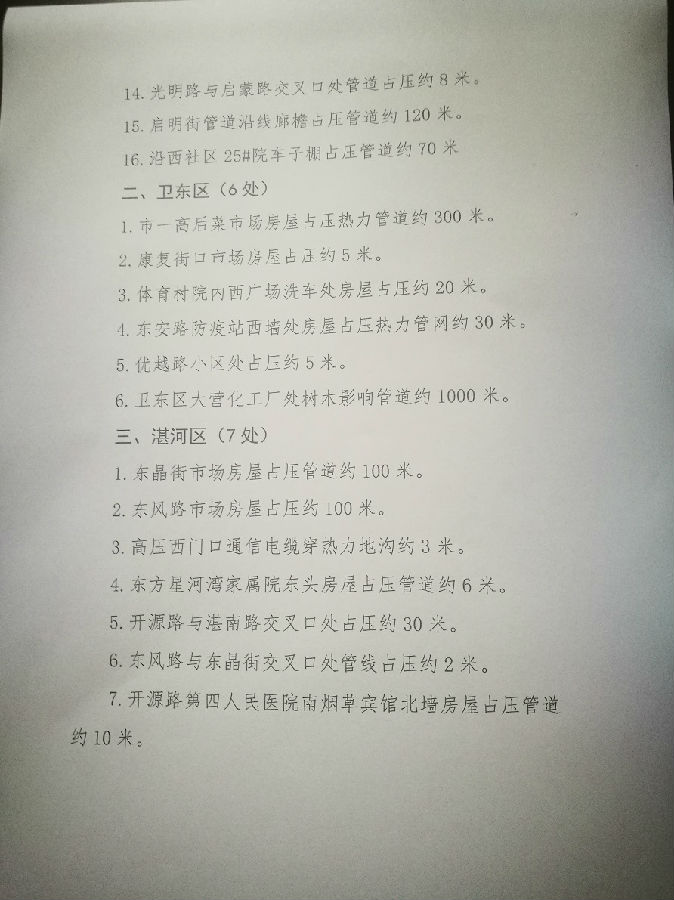 14.光明路与启蒙路交叉口处管道占压约8米。
15.启明街管道沿线廊檐占压管道约120米。
16.沿西社区25#院车子棚占压管道约70米
二、卫东区（6处）
1.市一高后菜市场房屋占压热力管道约300米。
2.康复街口市场房屋占压约5米。
3.体育村院内西广场洗车处房屋占压约20米。
4.东安路防疫站西墙处房屋占压热力管网约30米。
5.优越路小区处占压约5米。
6.卫东区大营化工厂处树木影响管道约1000米。
三、湛河区（7处）
1.东晶街市场房屋占压管道约100米。
2.东风路市场房屋占压约100米。
3.高压西门口通信电缆穿热力地沟约3米。
4.东方星河湾家属院东头房屋占压管道约6米。
5.开源路与湛南路交叉口处占压约30米。
6.东风路与东晶街交叉口处管线占压约2米。
7.开源路第四人民医院南烟草宾馆北墙房屋占压管道
约10米。